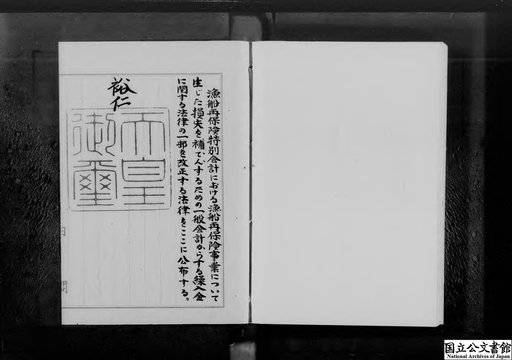 漁船再保険特別会計における漁船再保険事業について
生じた損失を補てんするための一般会計からする繰入金
に関する法律の一部を改正する法律をここに公布する。
裕仁
天皇
御璽
国立公文書館
National Archives of Japan